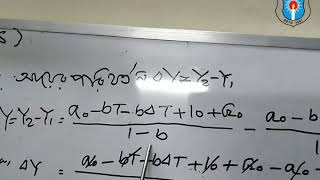 আয়ের পরিবর্তন ΔY = Y₂ - Y₁
Y = Y₂ - Y₁ = (a₀ - bT - bΔT + I₀ + G₀) / (1 - b) - (a₀ - b
ΔY = a₀ - bT - bΔT + I₀ + G₀ - a₀